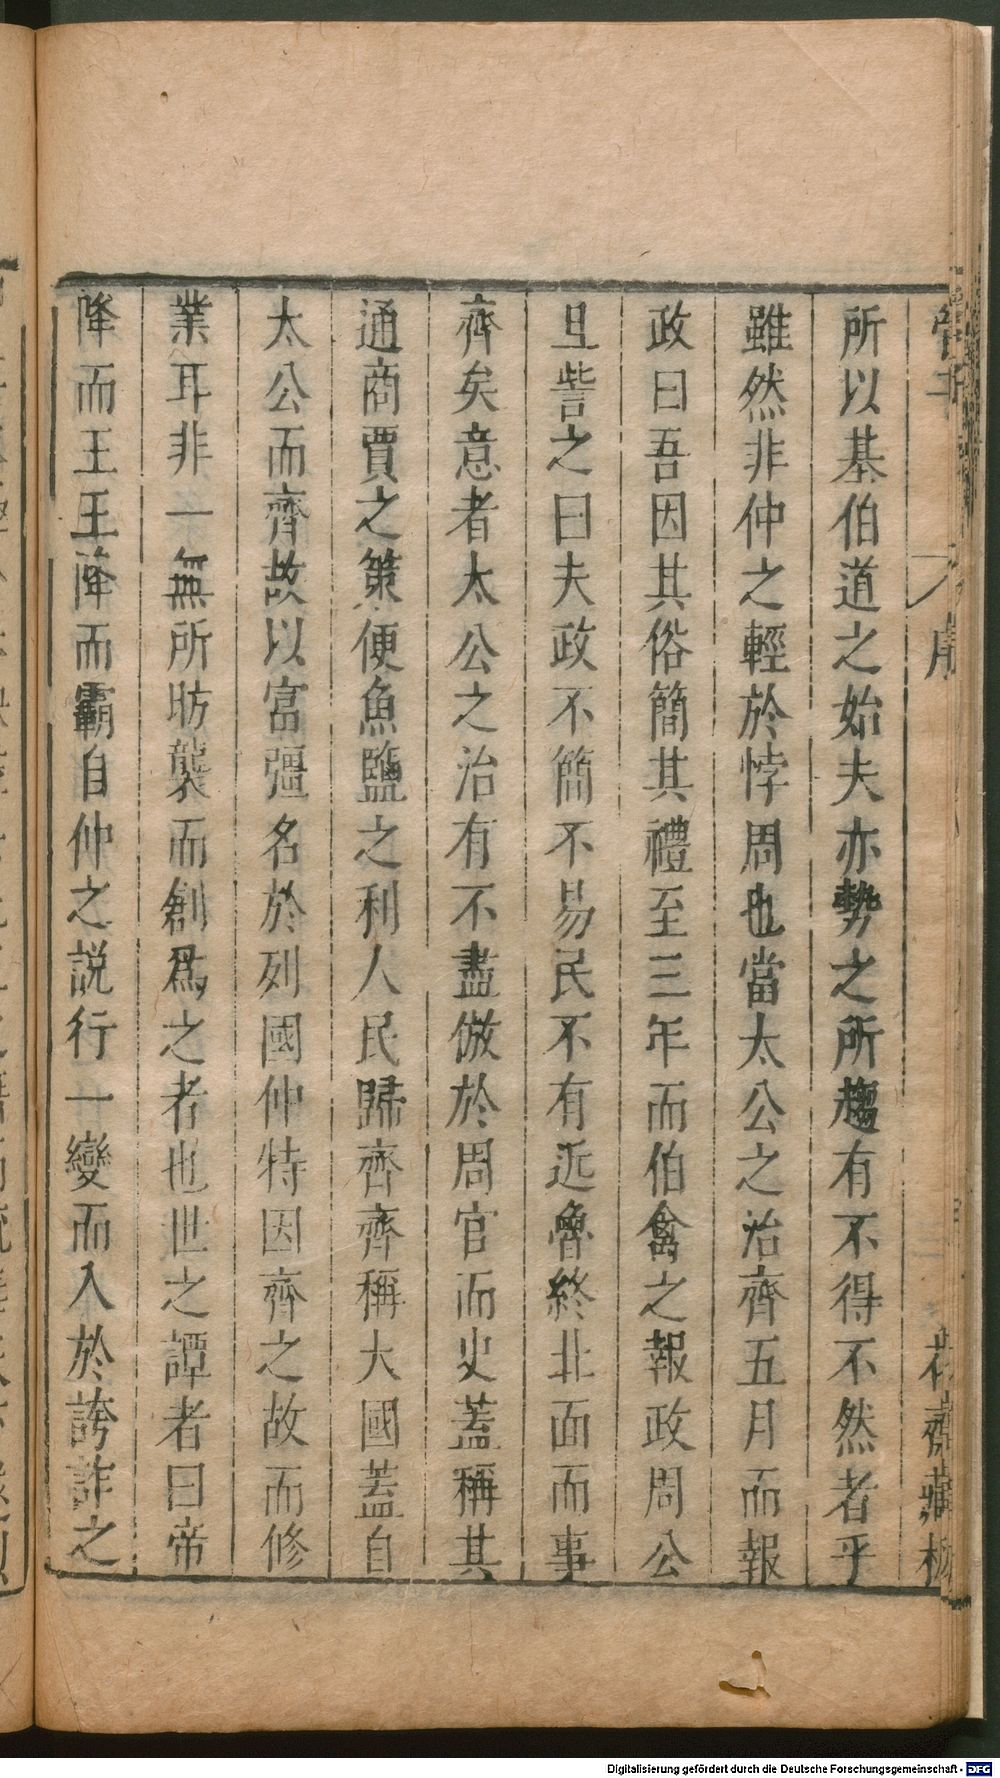 管子
序
花齋藏板
所以基伯道之始夫亦勢之所趨有不得不然者乎
雖然非仲之輕於悖周也當太公之治齊五月而報
政曰吾因其俗簡其禮至三年而伯禽之報政周公
旦訾之曰夫政不簡不易民不有近魯終北面而事
齊矣意者太公之治有不盡倣於周官而史蓋稱其
通商賈之策便魚鹽之利人民歸齊齊稱大國蓋自
太公而齊故以富彊名於列國仲特因齊之故而修
業耳非一無所昉襲而創爲之者也世之譚者曰帝
降而王王降而霸自仲之説行一變而入於誇詐之
Digitalisierung gefördert durch die Deutsche Forschungsgemeinschaft - DFG